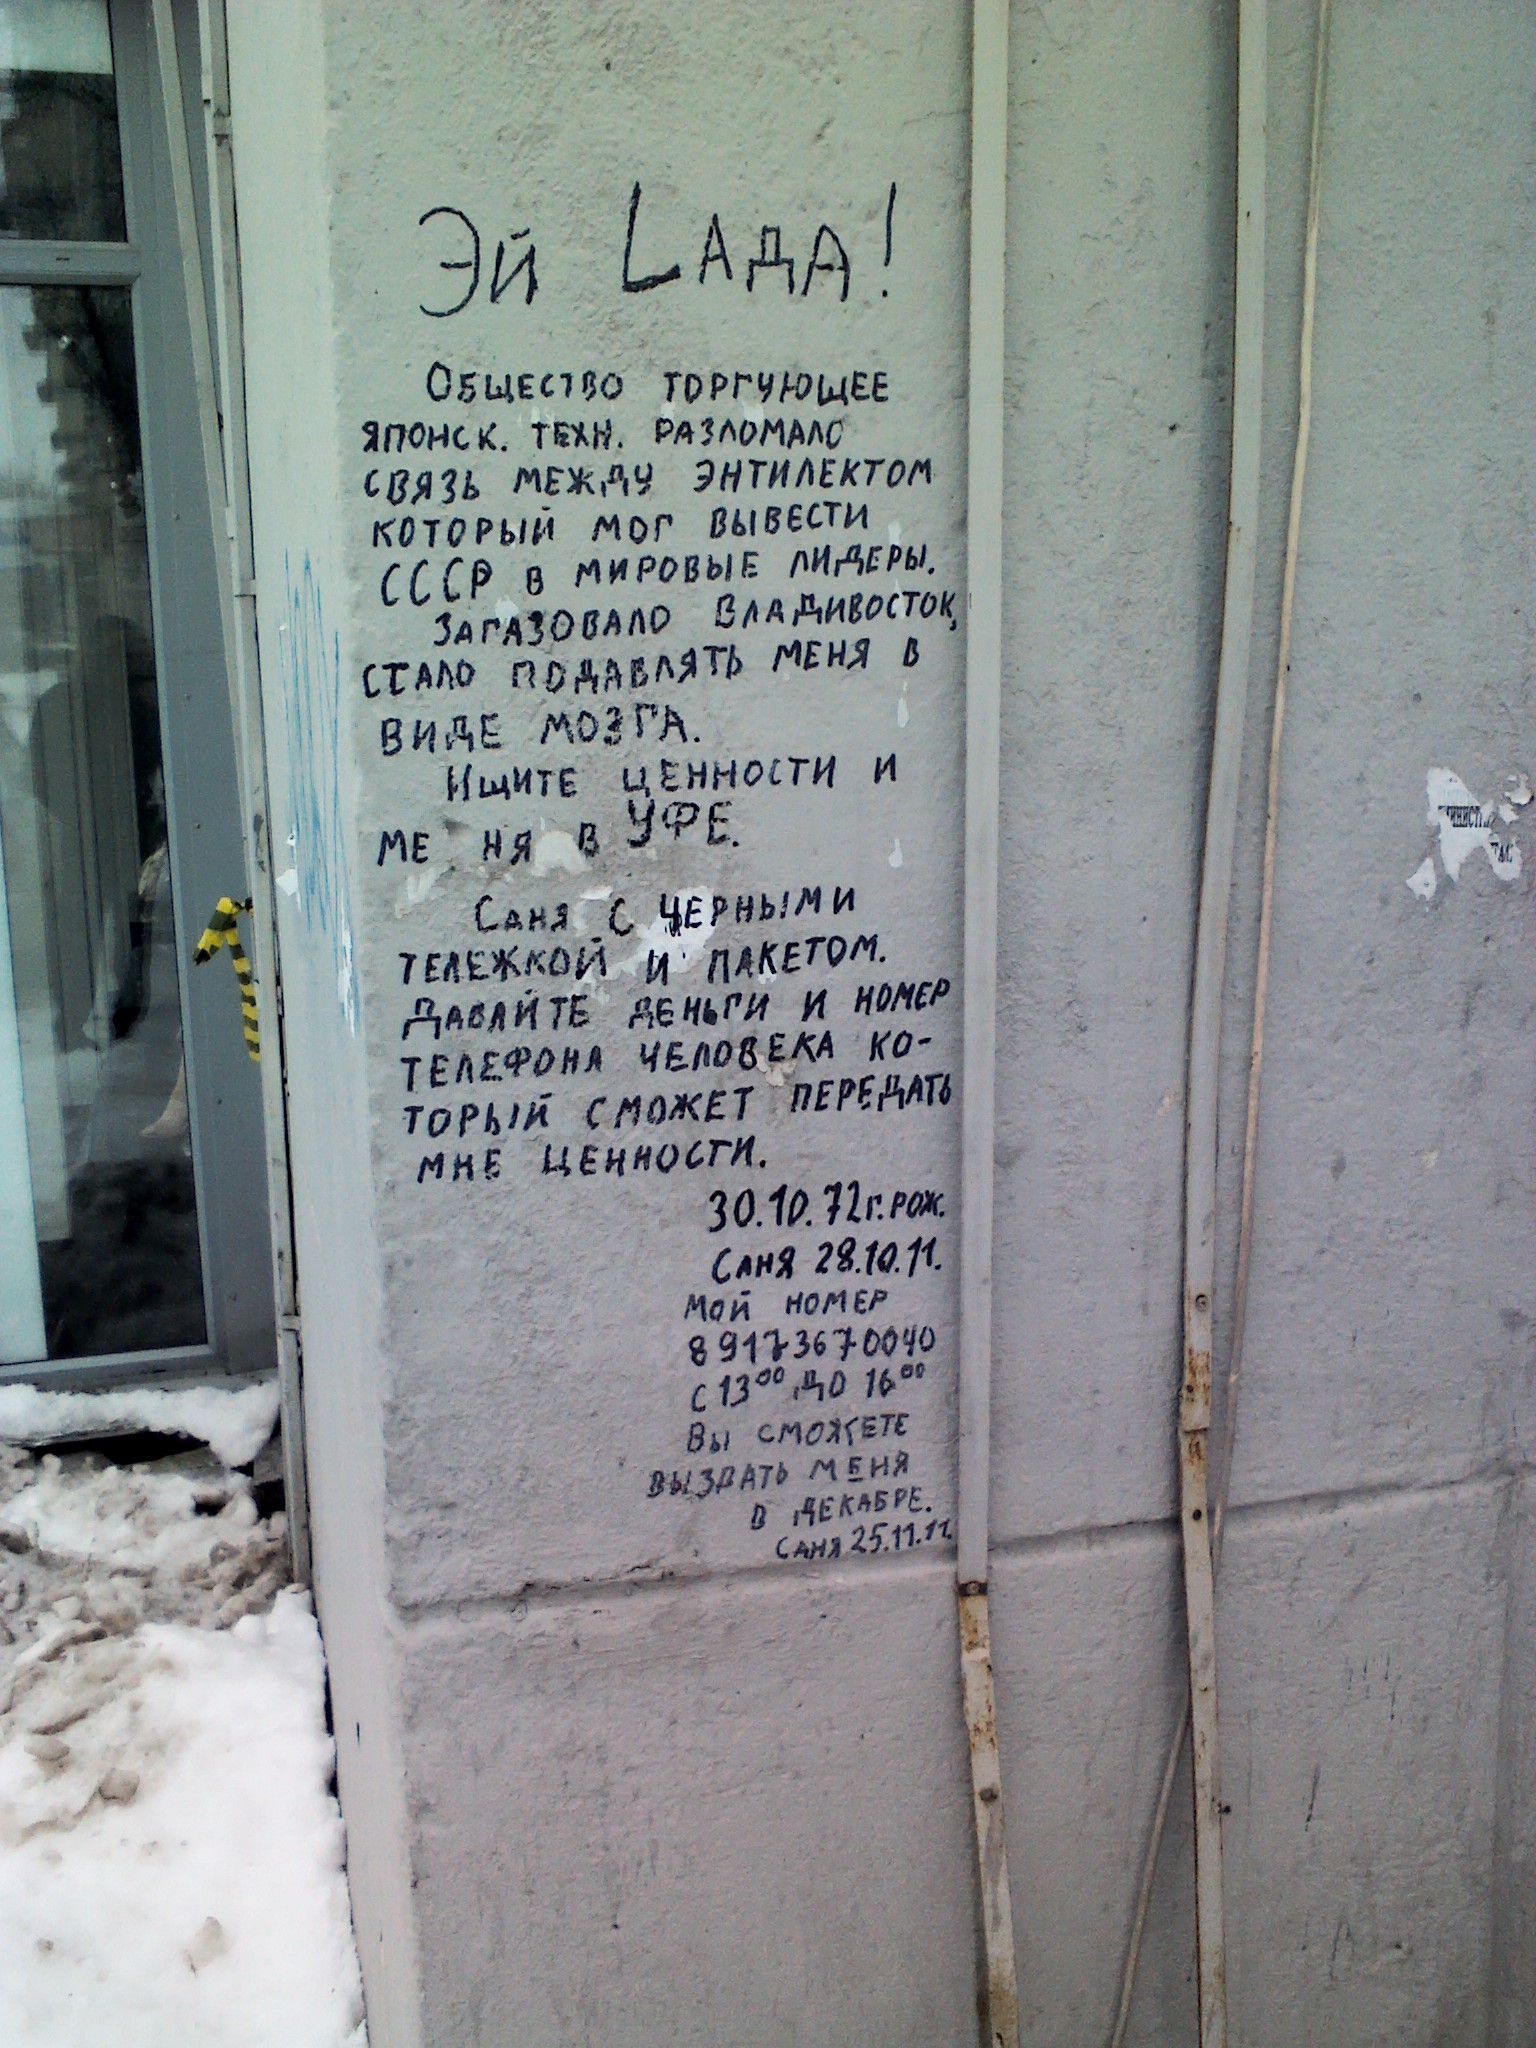 Эй Lада!
Общество торгующее
японск. техн. разломало
связь между энтилектом
который мог вывести
СССР в мировые лидеры.
Загазовало Владивосток,
стало подавлять меня в
виде мозга.
Ищите ценности и
ме ня в УФЕ.
Саня с черными
тележкой и пакетом.
Давайте деньги и номер
телефона человека ко-
торый сможет передать
мне ценности.
30.10.72г.рож.
Саня 28.10.11.
мой номер
89173670040
с 13⁰⁰ до 16⁰⁰
Вы сможете
выздать меня
в декабре.
Саня 25.11.11.